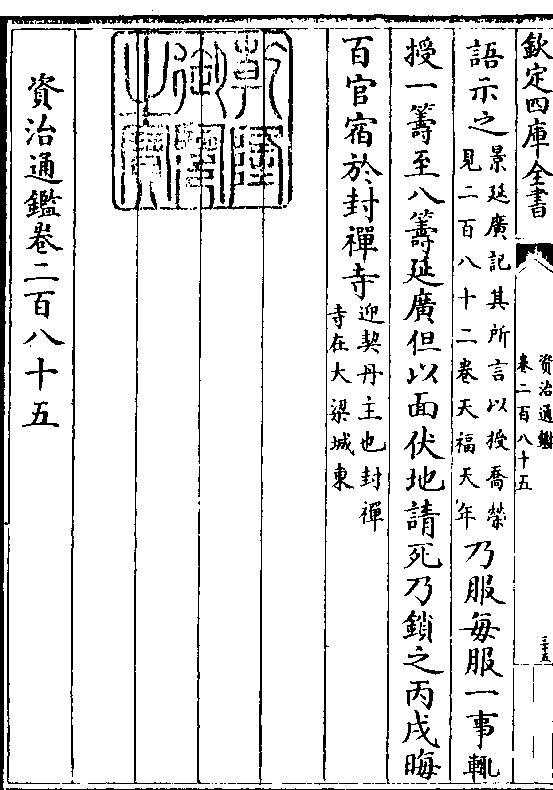 欽定四庫全書
資治通鑑
卷二百八十五
三十五
語示之景延廣記其所言以授喬榮
見二百八十二卷天福天年乃服每服一事輒
授一籌至八籌延廣但以面伏地請死乃鎖之丙戌晦
百官宿於封禪寺迎契丹主也封禪
寺在大梁城東
乾隆御覽之寶
資治通鑑卷二百八十五